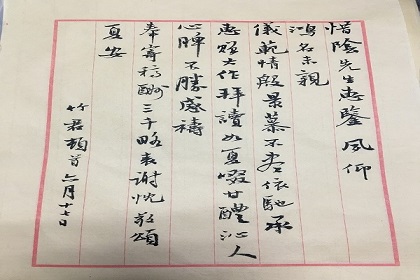 惜陰先生惠鑒風仰
鴻名未親
儀範情殷景慕不盡依馳承
惠賜大作拜讀如夏啜甘醴沁人
心脾不勝感禱
奉寄稿酬三千略表謝忱敬頌
夏安
竹君頓首六月十七日